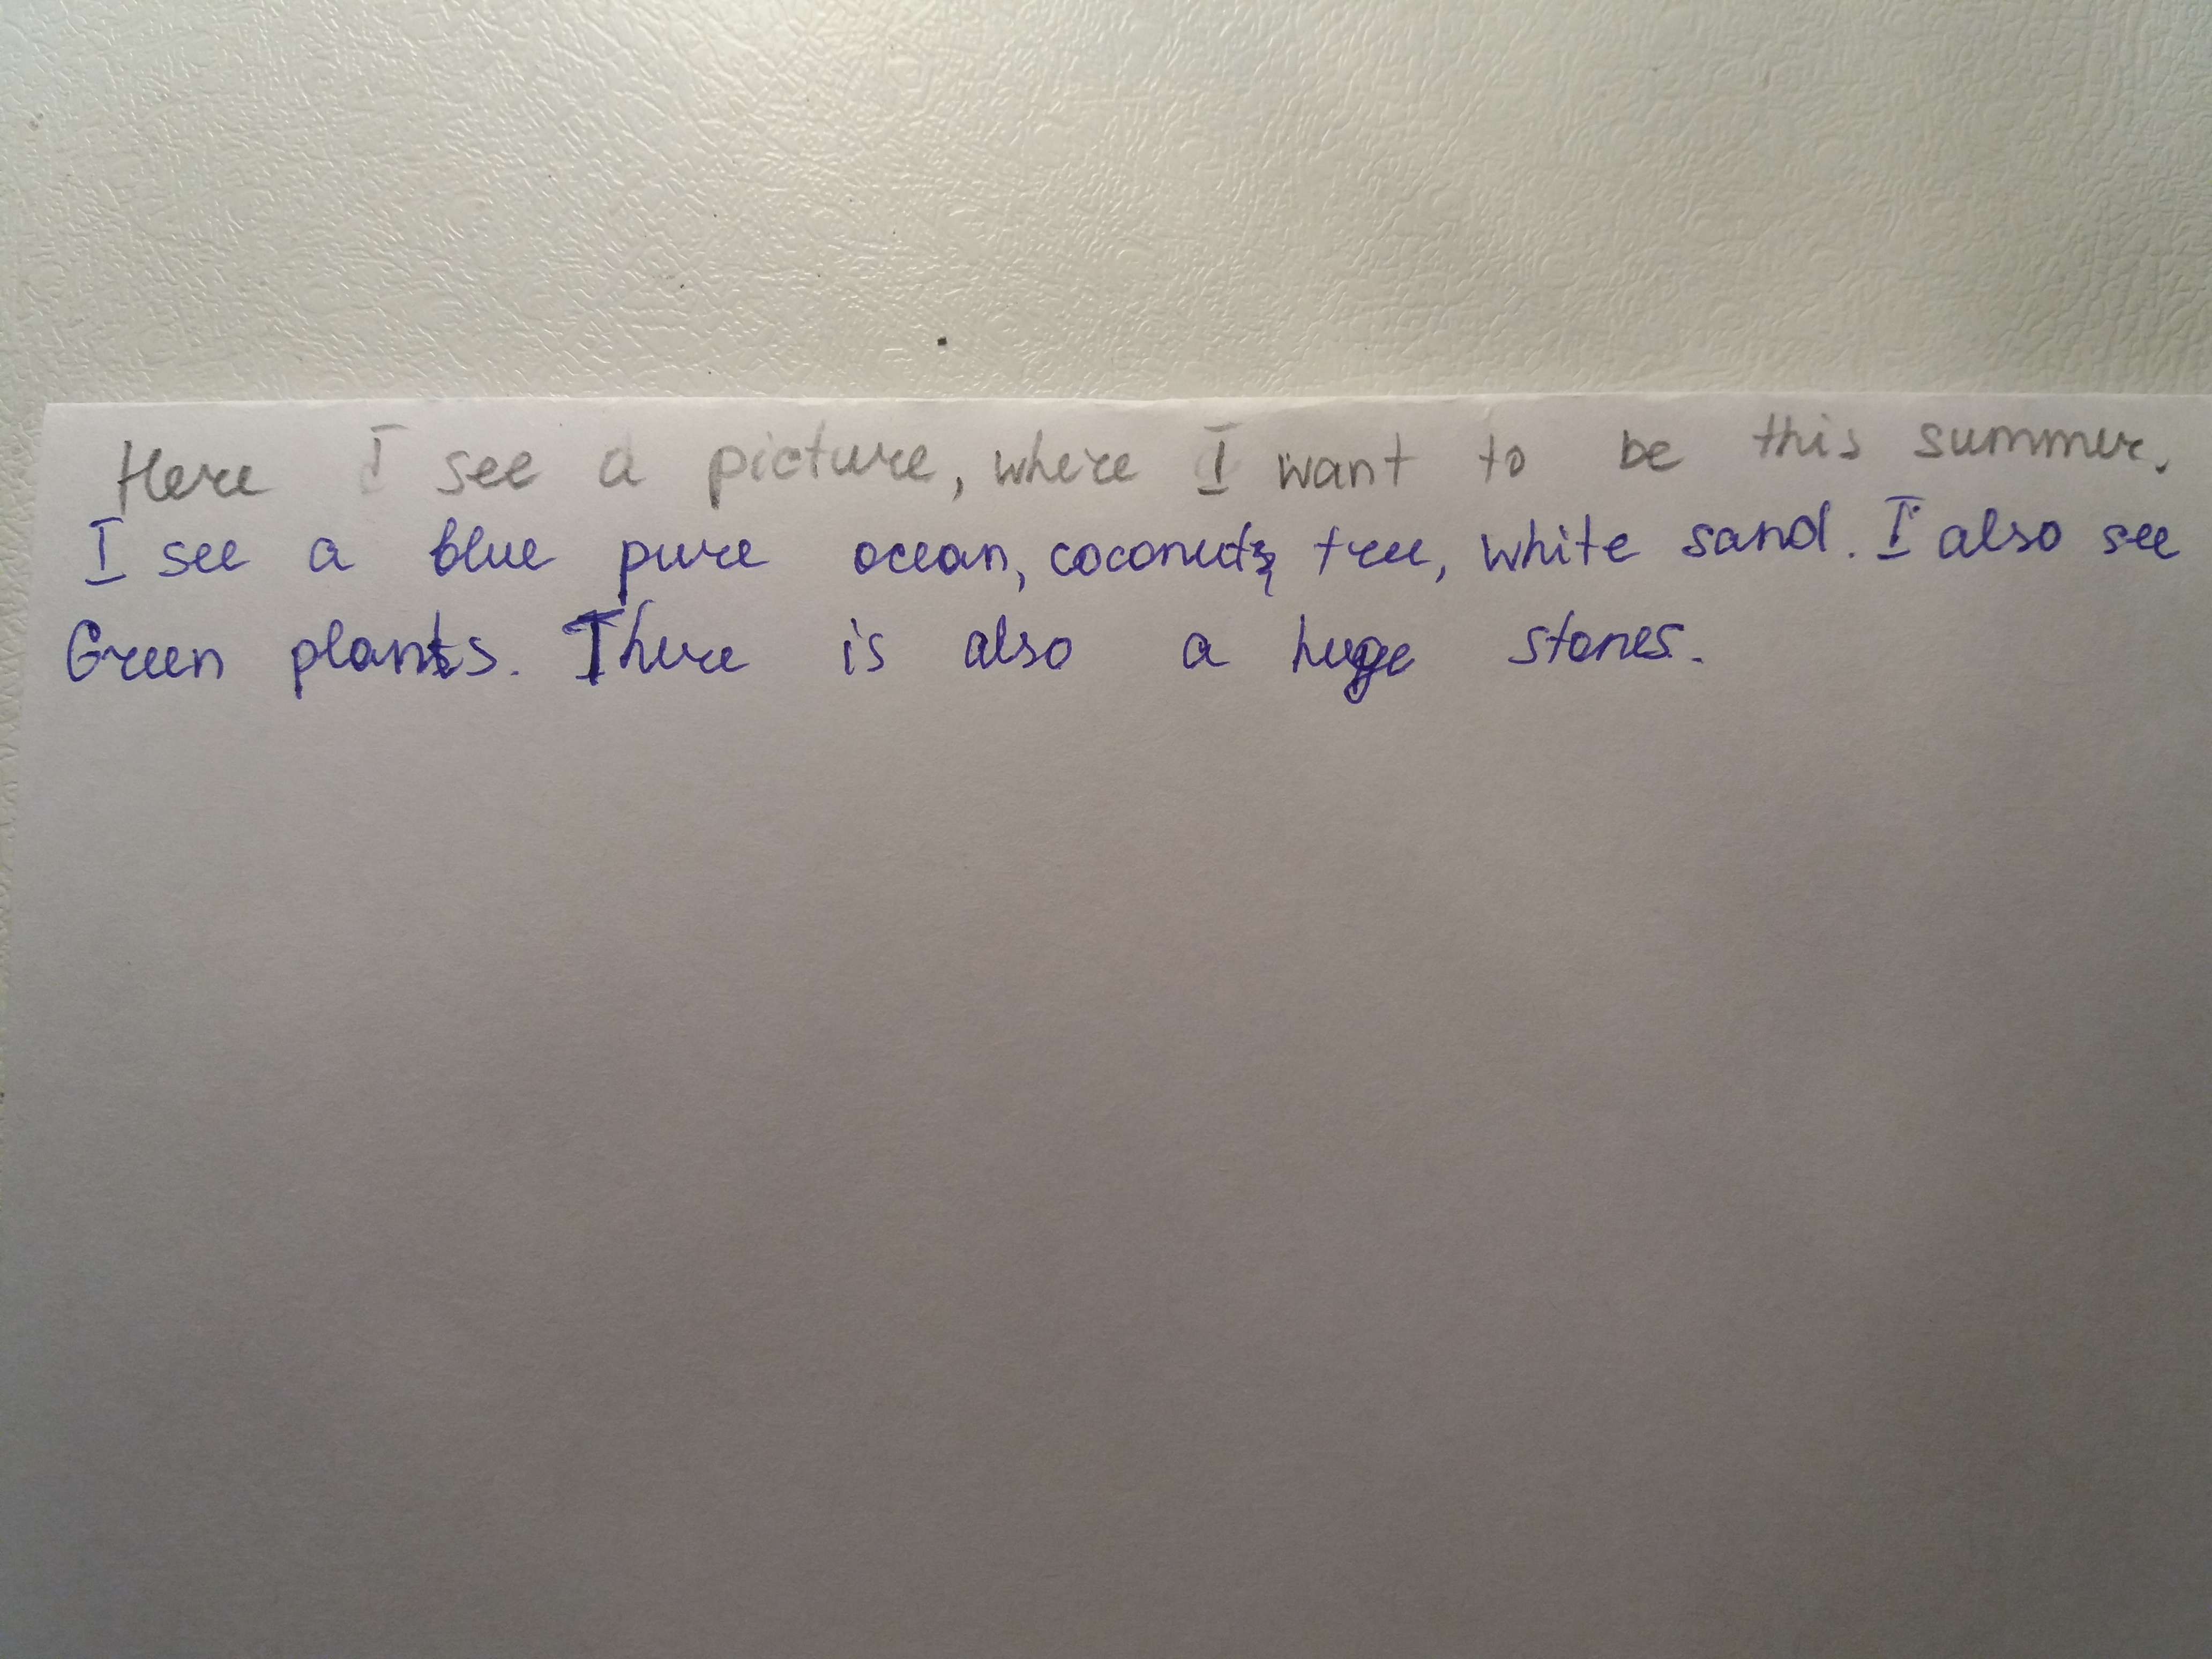 Here I see a picture, where I want to be this summer.
I see a blue pure ocean, coconuts tree, white sand. I also see
Green plants. There is also a huge stones.